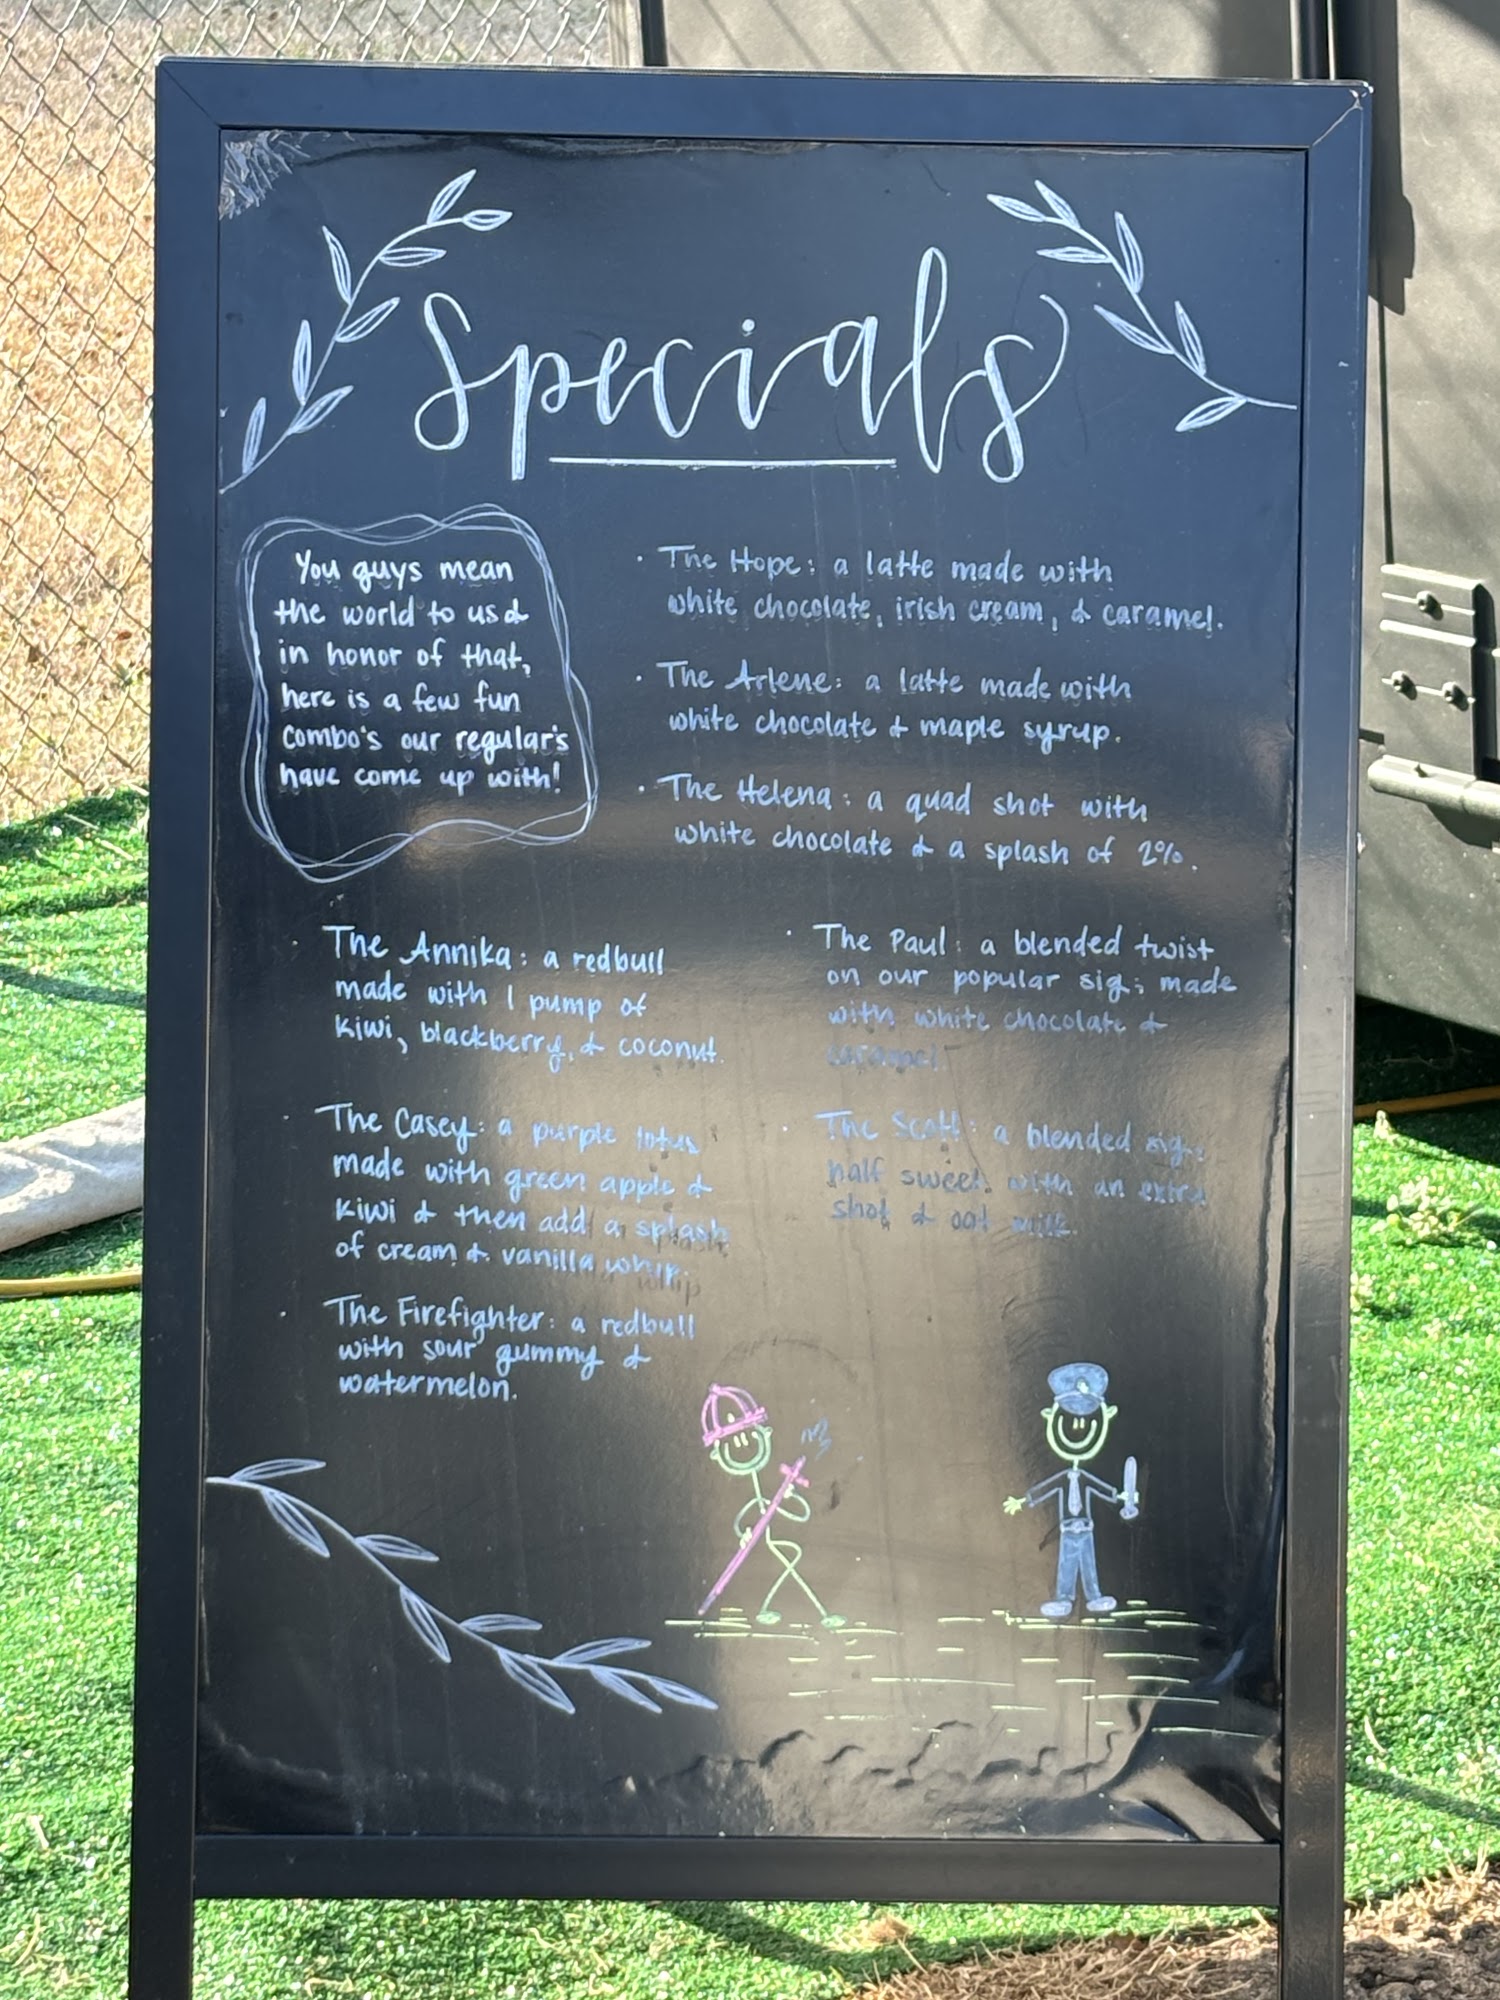 Specials
You guys mean
the world to us &
in honor of that,
here is a few fun
combo's our regular's
have come up with!
· The Hope: a latte made with
white chocolate, irish cream, & caramel.
· The Arlene: a latte made with
white chocolate & maple syrup.
· The Helena: a quad shot with
white chocolate & a splash of 2%.
· The Annika: a redbull
made with 1 pump of
kiwi, blackberry, & coconut.
· The Casey: a purple lotus
made with green apple &
kiwi & then add a splash
of cream & vanilla whip.
· The Firefighter: a redbull
with sour gummy &
watermelon.
· The Paul: a blended twist
on our popular sig; made
with white chocolate &
caramel.
· The Scott: a blended sig,
half sweet with an extra
shot & oat milk.